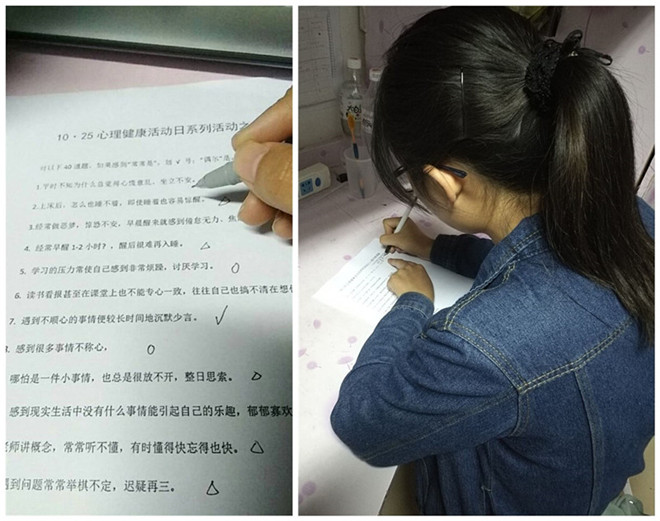 10·25心理健康活动日系列活动之
对以下40道题,如果感到“常常是”,划√号;“偶尔”是
1.平时不知为什么总觉得心慌意乱,坐立不安。
2.上床后,怎么也睡不着,即使睡着也容易惊醒。
3.经常做恶梦,惊恐不安,早晨醒来就感到倦怠无力、焦
4. 经常早醒1-2小时?,醒后很难再入睡。 △
5. 学习的压力常使自己感到非常烦躁,讨厌学习。 ○
6. 读书看报甚至在课堂上也不能专心一致,往往自己也搞不清在想什
7. 遇到不顺心的事情便较长时间地沉默少言。 √
感到很多事情不称心, ○
哪怕是一件小事情,也总是很放不开,整日思索。 △
感到现实生活中没有什么事情能引起自己的乐趣,郁郁寡欢
老师讲概念,常常听不懂,有时懂得快忘得也快。 △
遇到问题常常举棋不定,迟疑再三。 △